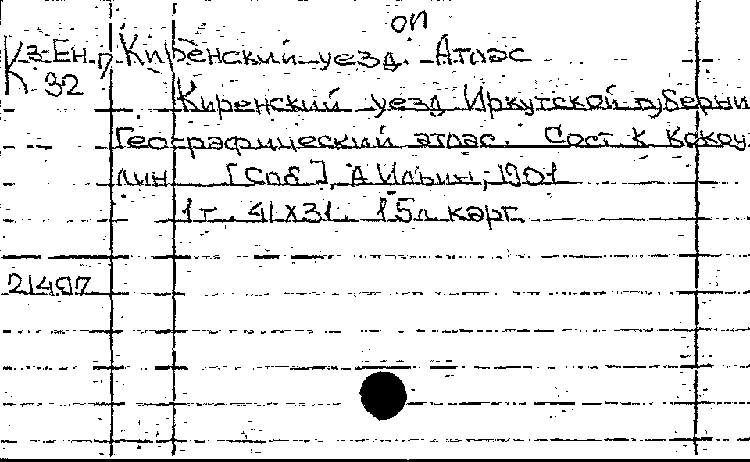 оп
К з-Ен.п Киренский уезд. Атлас
К 92
Киренский уезд Иркутской губерни
Географический атлас. Сост. К Кокоу
лин [Спб], А Ильин, 1901
1 т. 41х31. 15л карт.
21497